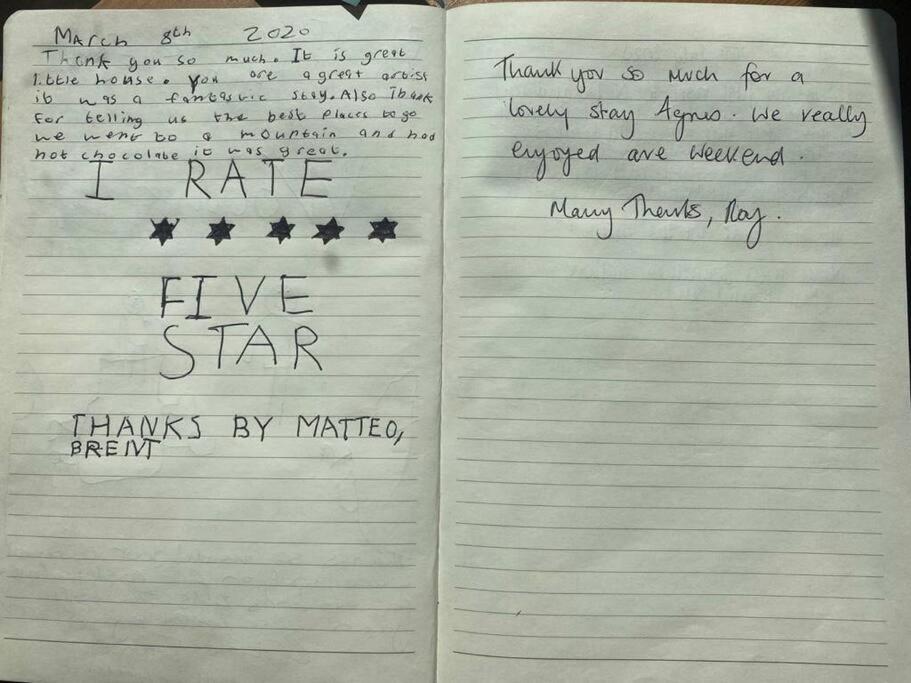 March 8th 2020
Thank you so much. It is great
little house. you are a great artist
it was a fantastic stay. Also Thank
for telling us the best places to go
we went to a mountain and had
hot chocolate it was great.
I RATE
★ ★ ★ ★ ★
FIVE
STAR
THANKS BY MATTEO,
BRENT
Thank you so much for a
lovely stay Agnes. We really
enjoyed are weekend.
Many Thanks, Ray.